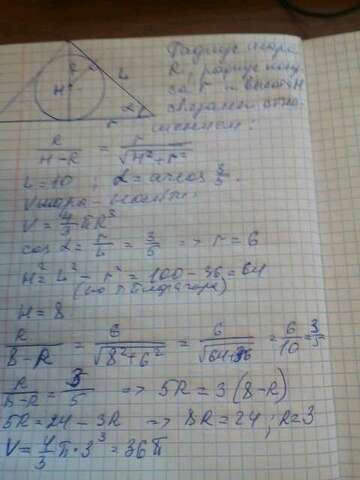 Радиус шара
R, радиус кону
са r и высота H
связаны соотно
шением:
R
H
L
α
r
R/(H-R) = r/√(H²+r²)
L=10 ; α=arcos 3/5.
Vшара - найти.
V=4/3 πR³
cos α = r/L = 3/5 => r=6
H²=L²-r²=100-36=64
(по т Пифагора)
H=8
R/(8-R) = 6/√(8²+6²) = 6/√(64+36) = 6/10 = 3/5
R/(8-R) = 3/5 => 5R=3(8-R)
5R=24-3R => 8R=24; R=3
V=4/3 π·3³=36π